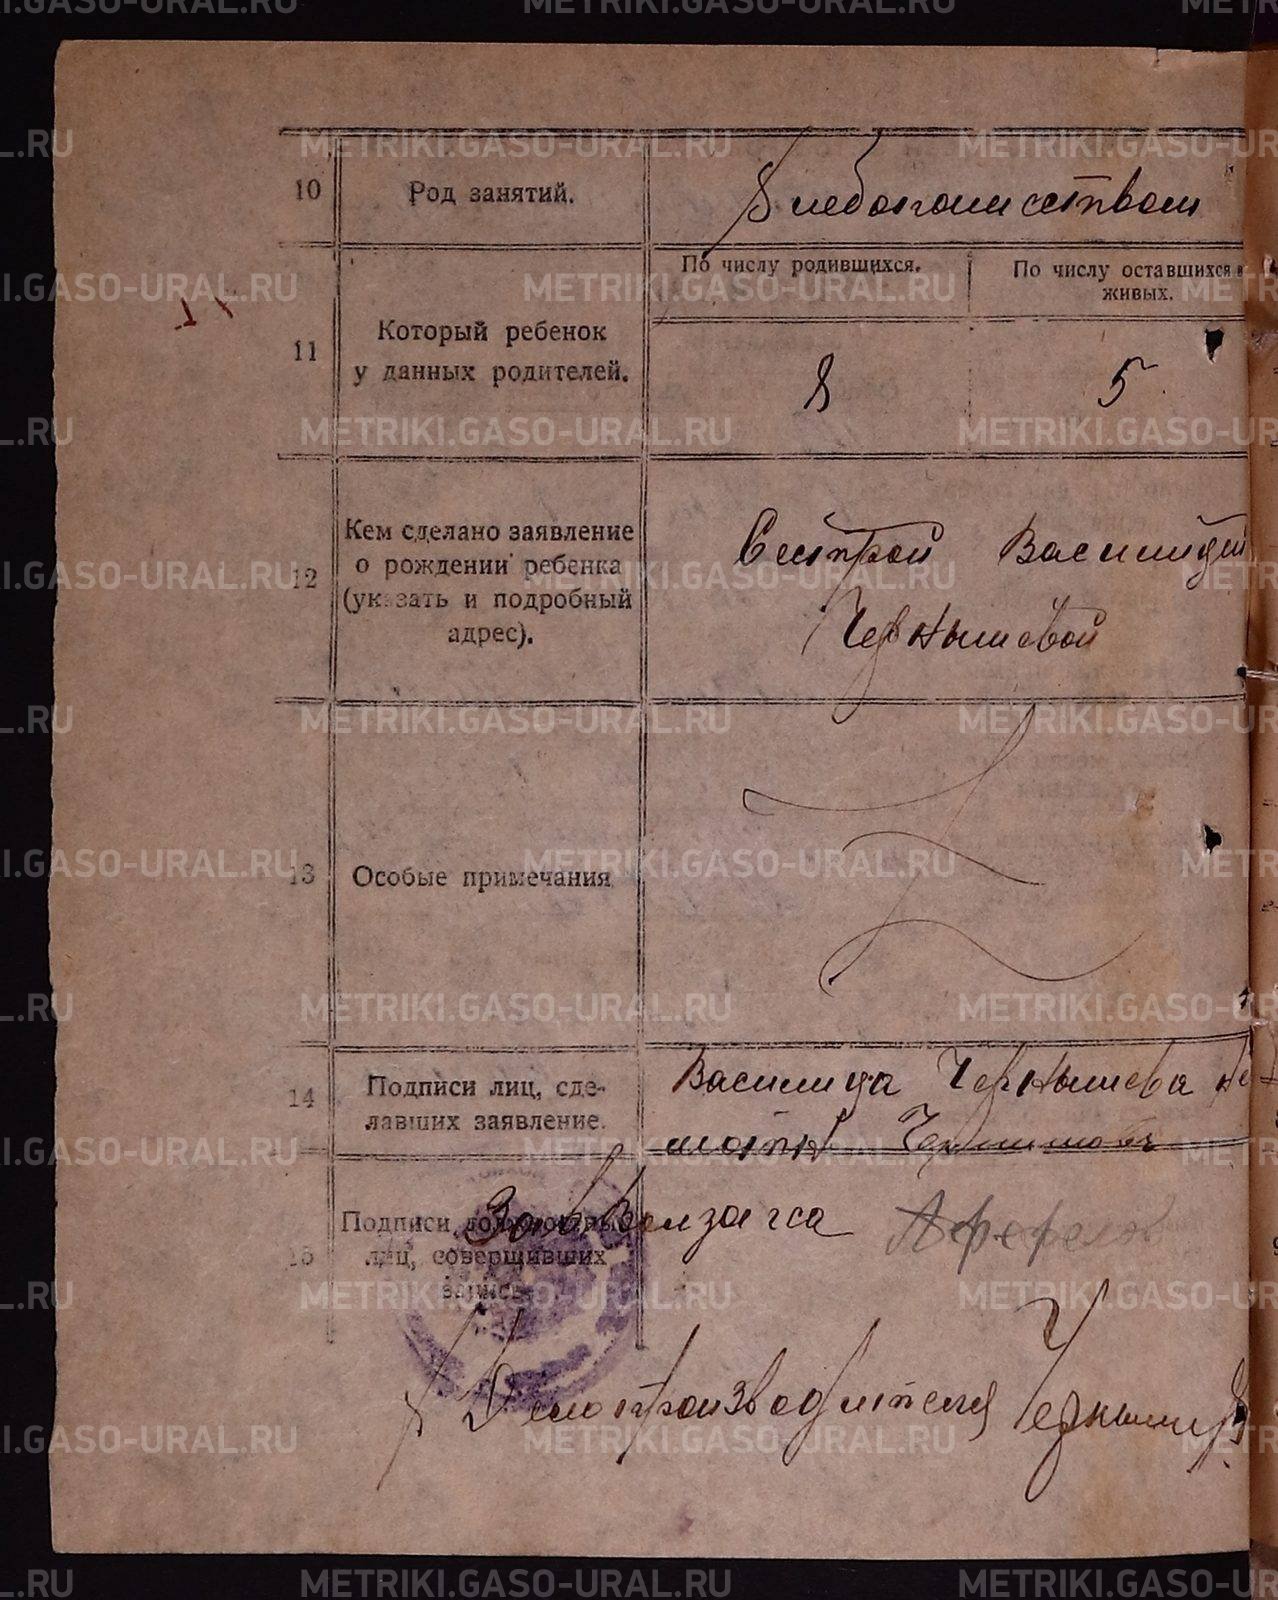 10 Род занятий. Хлебопашеством
11 Который ребенок у данных родителей.
По числу родившихся. По числу оставшихся в живых.
8 5
12 Кем сделано заявление
о рождении ребенка
(указать и подробный
адрес).
Сестрой Василисой
Чернышевой
13 Особые примечания
14 Подписи лиц, сде-
лавших заявление.
Василиса Чернышева
Подписи должностных
15 лиц, совершивших
запись.
Зав Волзагса
Делопроизводителя Черныше
METRIKI.GASO-URAL.RU